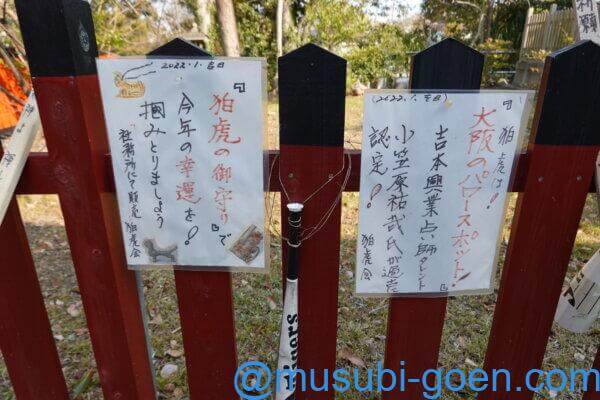 2022.1.吉日
『狛虎の御守り』で
今年の幸運を!
掴みとりましょう
「社務所にて販売 狛虎会
(2022.1.吉日)
『狛虎は!
大阪のパワースポット!』
吉本興業占い師タレント
小笠原祐哉氏が過去に
認定! 狛虎会
祈願
@musubi-goen.com